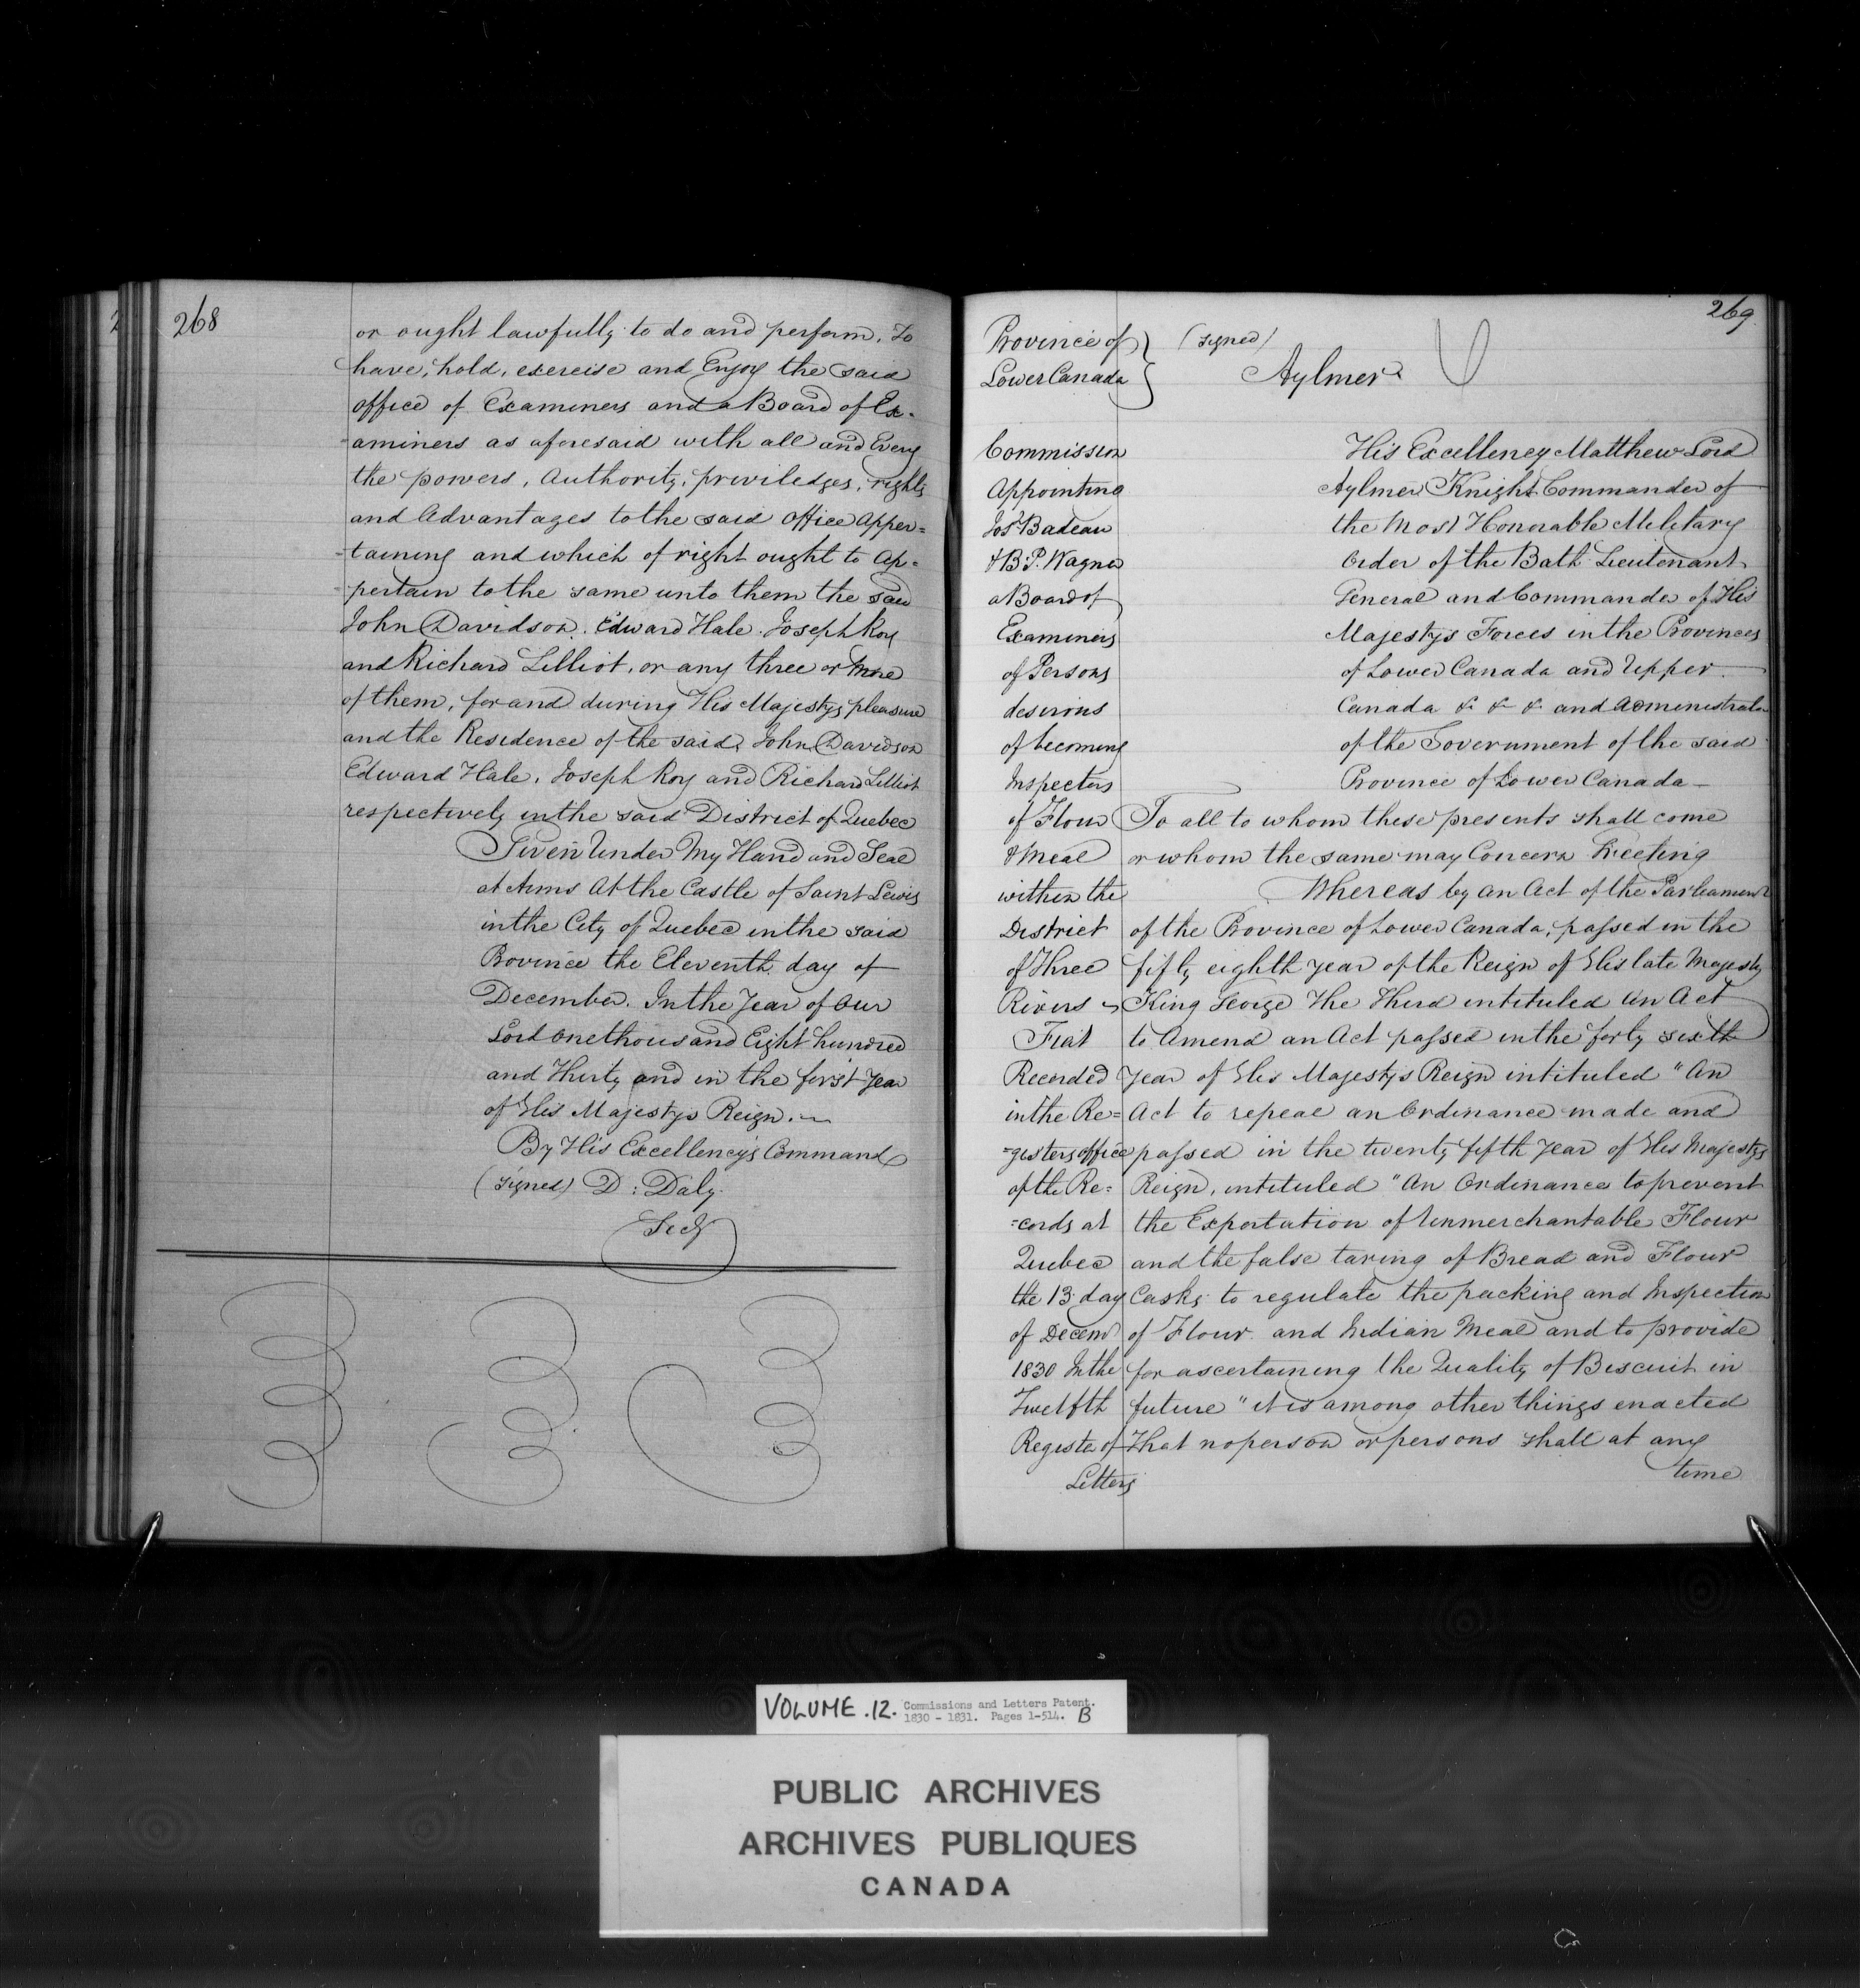 268
or ought lawfully to do and perform. To
have, hold, exercise and Enjoy the said
office of Examiners and a Board of Ex-
-aminers as aforesaid with all and Every
the powers, Authority, priviledges, rights
and Advantages to the said office Apper=
-taining and which of right ought to Ap=
-pertain to the same unto them the said
John Davidson. Edward Hale. Joseph Roy
and Richard Lilliot, or any three or more
of them, for and during His Majestys pleasure
and the Residence of the said John Davidson
Edward Hale, Joseph Roy and Richard Lilliot
respectively in the said District of Quebec
Given Under My Hand and Seal
at Arms At the Castle of Saint Lewis
in the City of Quebec in the said
Province the Eleventh day of
December. In the Year of Our
Lord One thousand Eight hundred
and Thirty and in the first Year
of His Majestys Reign.
By His Excellency's Command
(signed) D: Daly.
Secy
269
Province of
Lower Canada
(signed)
Aylmer
Commission
Appointing
Jos Badeau
& B. P. Wagner
a Board of
Examiners
of Persons
desirous
of becoming
Inspectors
of Flour
& Meal
within the
District
of Three
Rivers
Fiat
Recorded
in the Re=
=gisters office
of the Re=
=cords at
Quebec
the 13 day
of Decem
1830 In the
Twelfth
Registe of
Letters
His Excellency Matthew Lord
Aylmer Knight Commander of
the Most Honorable Military
Order of the Bath Lieutenant
General and Commander of His
Majestys Forces in the Provinces
of Lower Canada and Upper
Canada & & & and Administrator
of the Government of the said
Province of Lower Canada —
To all to whom these presents shall come
or whom the same may Concern Greeting
Whereas by an Act of the Parliament
of the Province of Lower Canada, passed in the
fifty eighth year of the Reign of His late Majesty
King George The Third intituled An Act
to Amend an Act passed in the forty sixth
Year of His Majestys Reign intituled "An
Act to repeal an Ordinance made and
passed in the twenty fifth Year of His Majestys
Reign, intituled "An Ordinance to prevent
the Exportation of Unmerchantable Flour
and the false taring of Bread and Flour
Casks to regulate the packing and Inspection
of Flour and Indian Meal and to provide
for ascertaining the Quality of Biscuit in
future" it is among other things enacted
That no person or persons shall at any
time
VOLUME .12. Commissions and Letters Patent.
1830 - 1831. Pages 1-514. B
PUBLIC ARCHIVES
ARCHIVES PUBLIQUES
CANADA